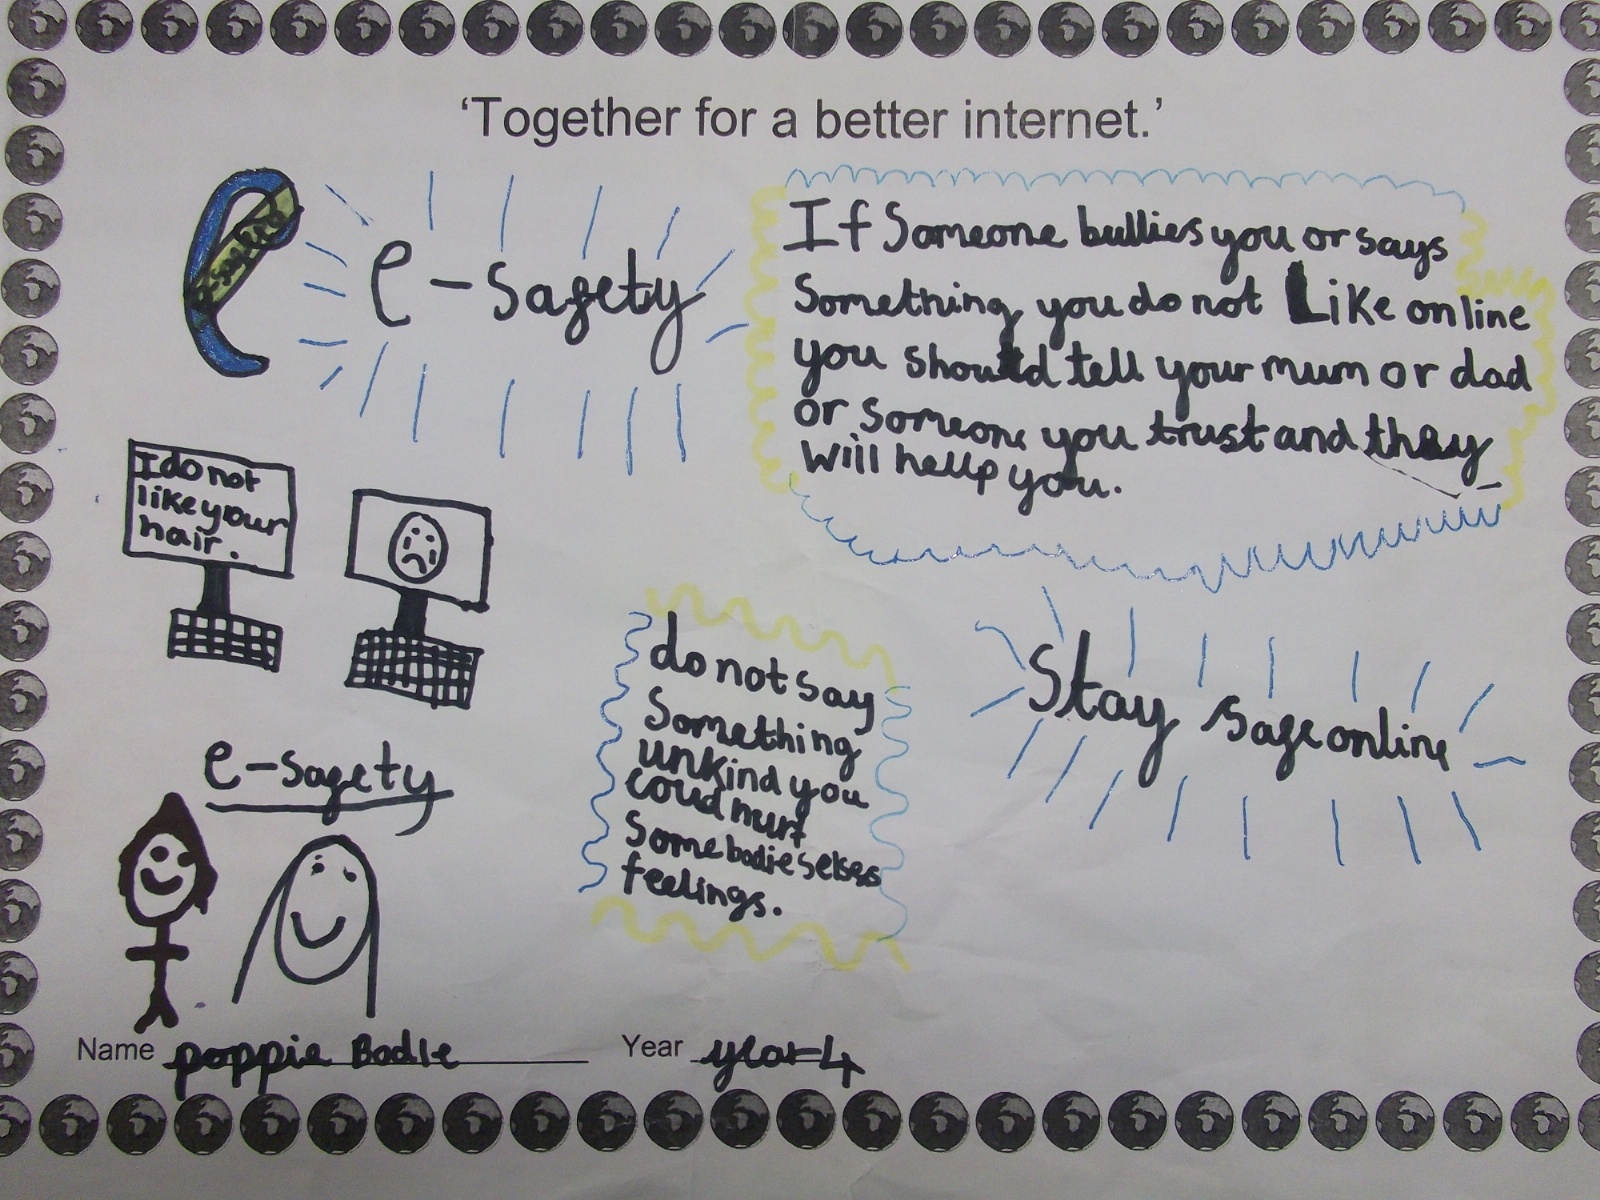 'Together for a better internet.'
e-safety
e-safety
If Someone bullies you or says
Something you do not Like online
you should tell your mum or dad
or someone you trust and they
will hellp you.
I do not
like your
hair.
do not say
Something
unkind you
coud hurt
Somebodies elses
feelings.
Stay safe online
e-safety
Name poppie Bodle
Year year 4